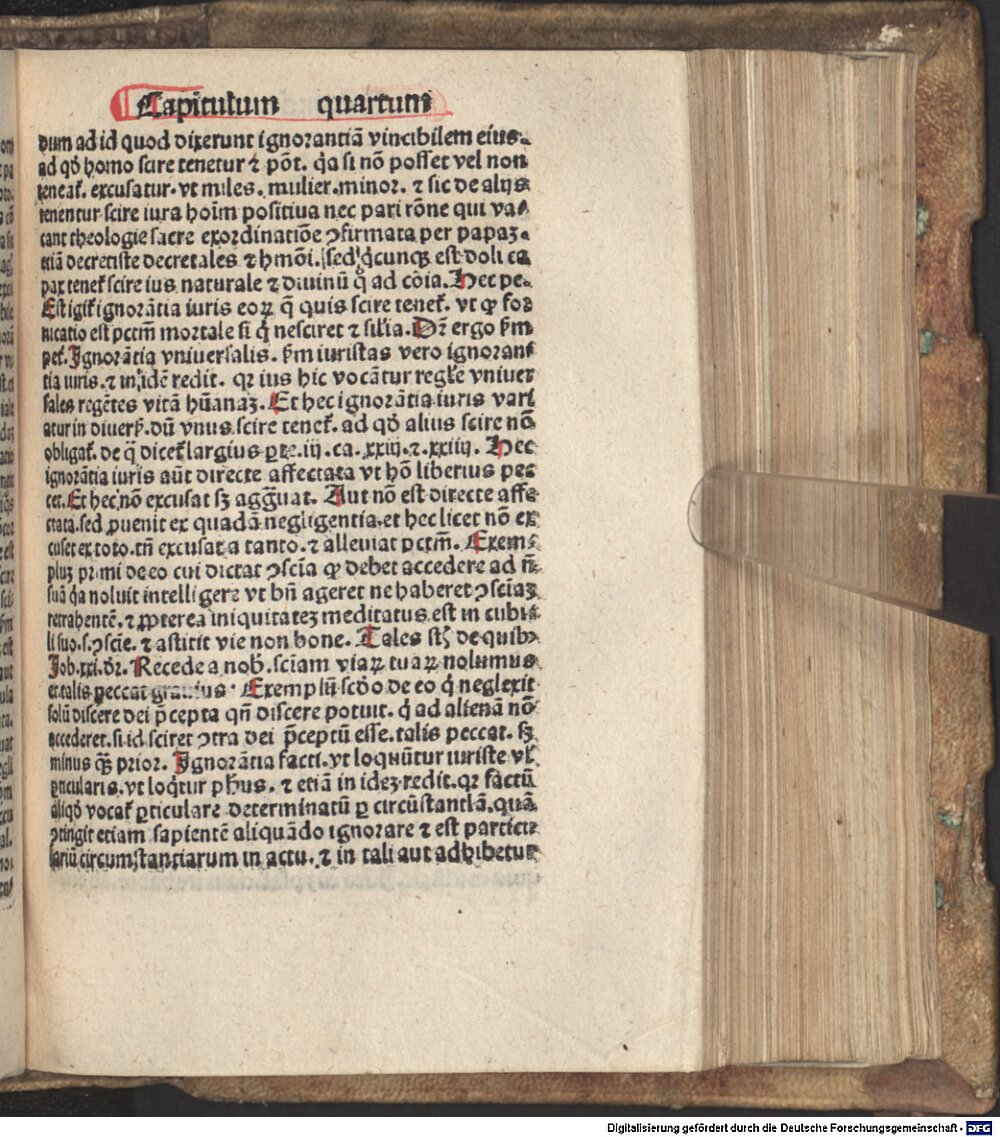 Capitulum quartum
dum ad id quod dixerunt ignorantiā vincibilem eius.
ad qđ homo scire tenetur ⁊ pōt. q̇a si nō posset vel non
teneat̄. excusatur. vt miles. mulier. minor. ⁊ sic de alijs
tenentur scire iura hoīm positiua nec pari rōne qui va⸗
cant theologie sacre exordinatiōe ꝯfirmata per papaꝫ.
etiā decretiste decretales ⁊ hmōi. sed q̇cunqꝫ est doli ca
pax tenet̄ scire ius naturale ⁊ diuinū q̄ ad cōia. Hec pe.
Est igit̄ ignorātia iuris eoꝝ q̄ quis scire tenet̄. vt ꝙ for
nicatio est pctm̄ mortale si q̇ nesciret ⁊ silia. Dr̄ ergo fm̄
pet̄. Ignorātia vniuersalis. fm̄ iuristas vero ignoran⸗
tia iuris. ⁊ in idē redit. qꝛ ius hic vocātur regl̄e vniuer
sales regētes vitā hūanaꝫ. Et hec ignorātia iuris vari
atur in diuers̄. dū vnus scire tenet̄. ad qđ alius scire nō
obligat̄. de q̄ dicet̄ largius ꝑte. iij. ca. xxiij. ⁊. xxiiij. Hec
ignorātia iuris aūt directe affectata vt hō liberius pec
cet. Et hec nō excusat sꝫ agḡuat. Aut nō est directe affe
ctata. sed ꝓuenit ex quadā negligentia. et hec licet nō ex
cuset ex toto. tn̄ excusat a tanto. ⁊ alleuiat pctm̄. Exem⸗
pluꝫ primi de eo cui dictat ꝯscīa ꝙ debet accedere ad m̄
suā q̇a noluit intelligere vt bn̄ ageret ne haberet ꝯsciāꝫ
retrahentē. ⁊ ꝓpterea iniquitateꝫ meditatus est in cubi⸗
li suo. s. ꝯscīe. ⁊ astitit vie non bone. Tales st̄ de quibꝰ
Job. xxi. dr̄. Recede a nob̄. sciam viaꝝ tuaꝝ nolumus
et talis peccat grauius. Exemplū scd̄o de eo q̇ neglexit
solū discere dei p̄cepta qn̄ discere potuit. q̇ ad alienā nō
accederet. si id sciret ꝯtra dei p̄ceptū esse. talis peccat. sꝫ
minus qꝫ prior. Ignorātia facti. vt loquūtur iuriste vl̄
ꝑticularis. vt loq̇tur phūs. ⁊ etiā in ideꝫ redit. qꝛ factū
aliqđ vocat̄ ꝑticulare determinatū ꝑ circūstantiā. quā
ꝯtingit etiam sapientē aliquādo ignorare ⁊ est particu
lariū circumstantiarum in actu. ⁊ in tali aut adhibetur
Digitalisierung gefördert durch die Deutsche Forschungsgemeinschaft - DFG